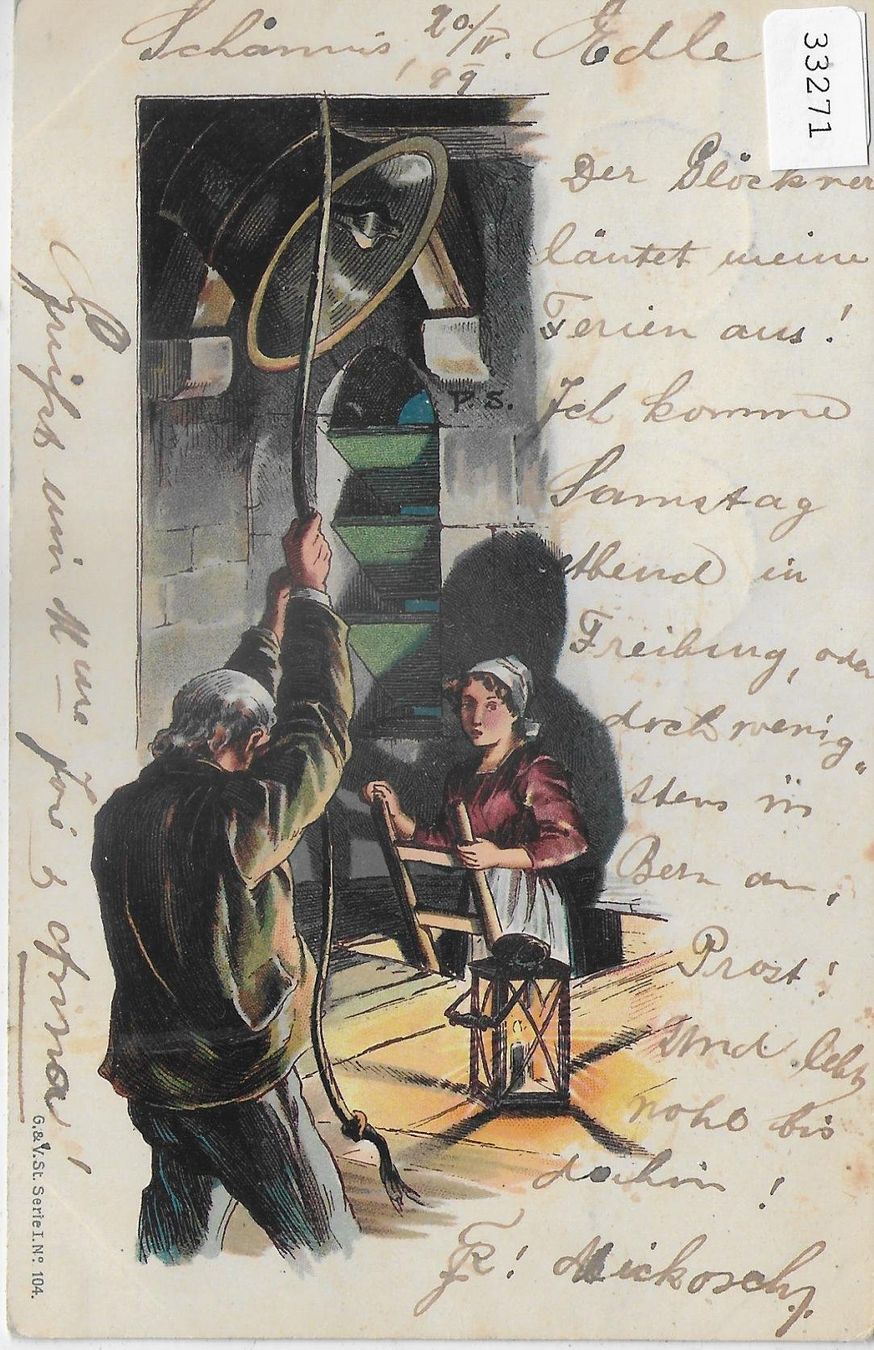 Schännis, 20/IV. 99 Edle
33271
Der Glöckner
läutet meine
Ferien aus!
Ich komme
Samstag
Abend in
Freiburg, oder
doch wenig„
stens in
Bern an,
Prost!
Und lebt
wohl bis
dahin!
FR! Mickosch,
P. S.
G. & V. St. Serie I. No. 104.